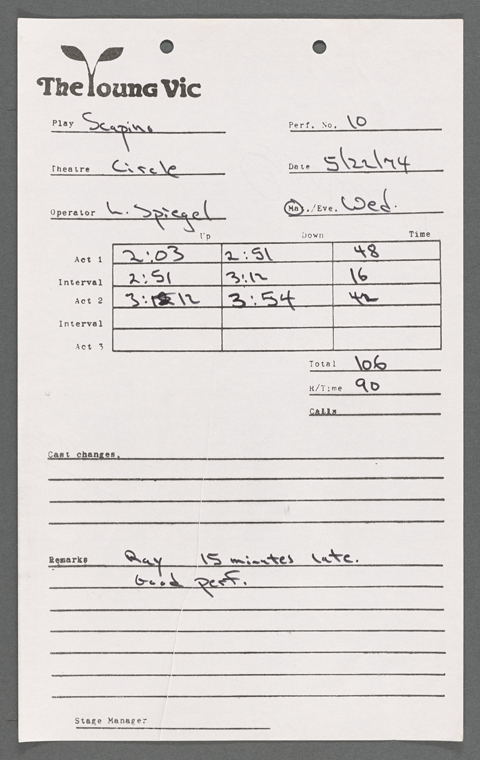 The Young Vic
Play Scapino
Perf. No. 10
Theatre Circle
Date 5/22/74
Operator L. Spiegel
Ma./Eve. Wed.
Up Down Time
Act 1 2:03 2:51 48
Interval 2:51 3:12 16
Act 2 3:12 3:54 42
Interval
Act 3
Total 106
R/Time 90
Calls
Cast changes.
Remarks Ray 15 minutes late.
Good perf.
Stage Manager